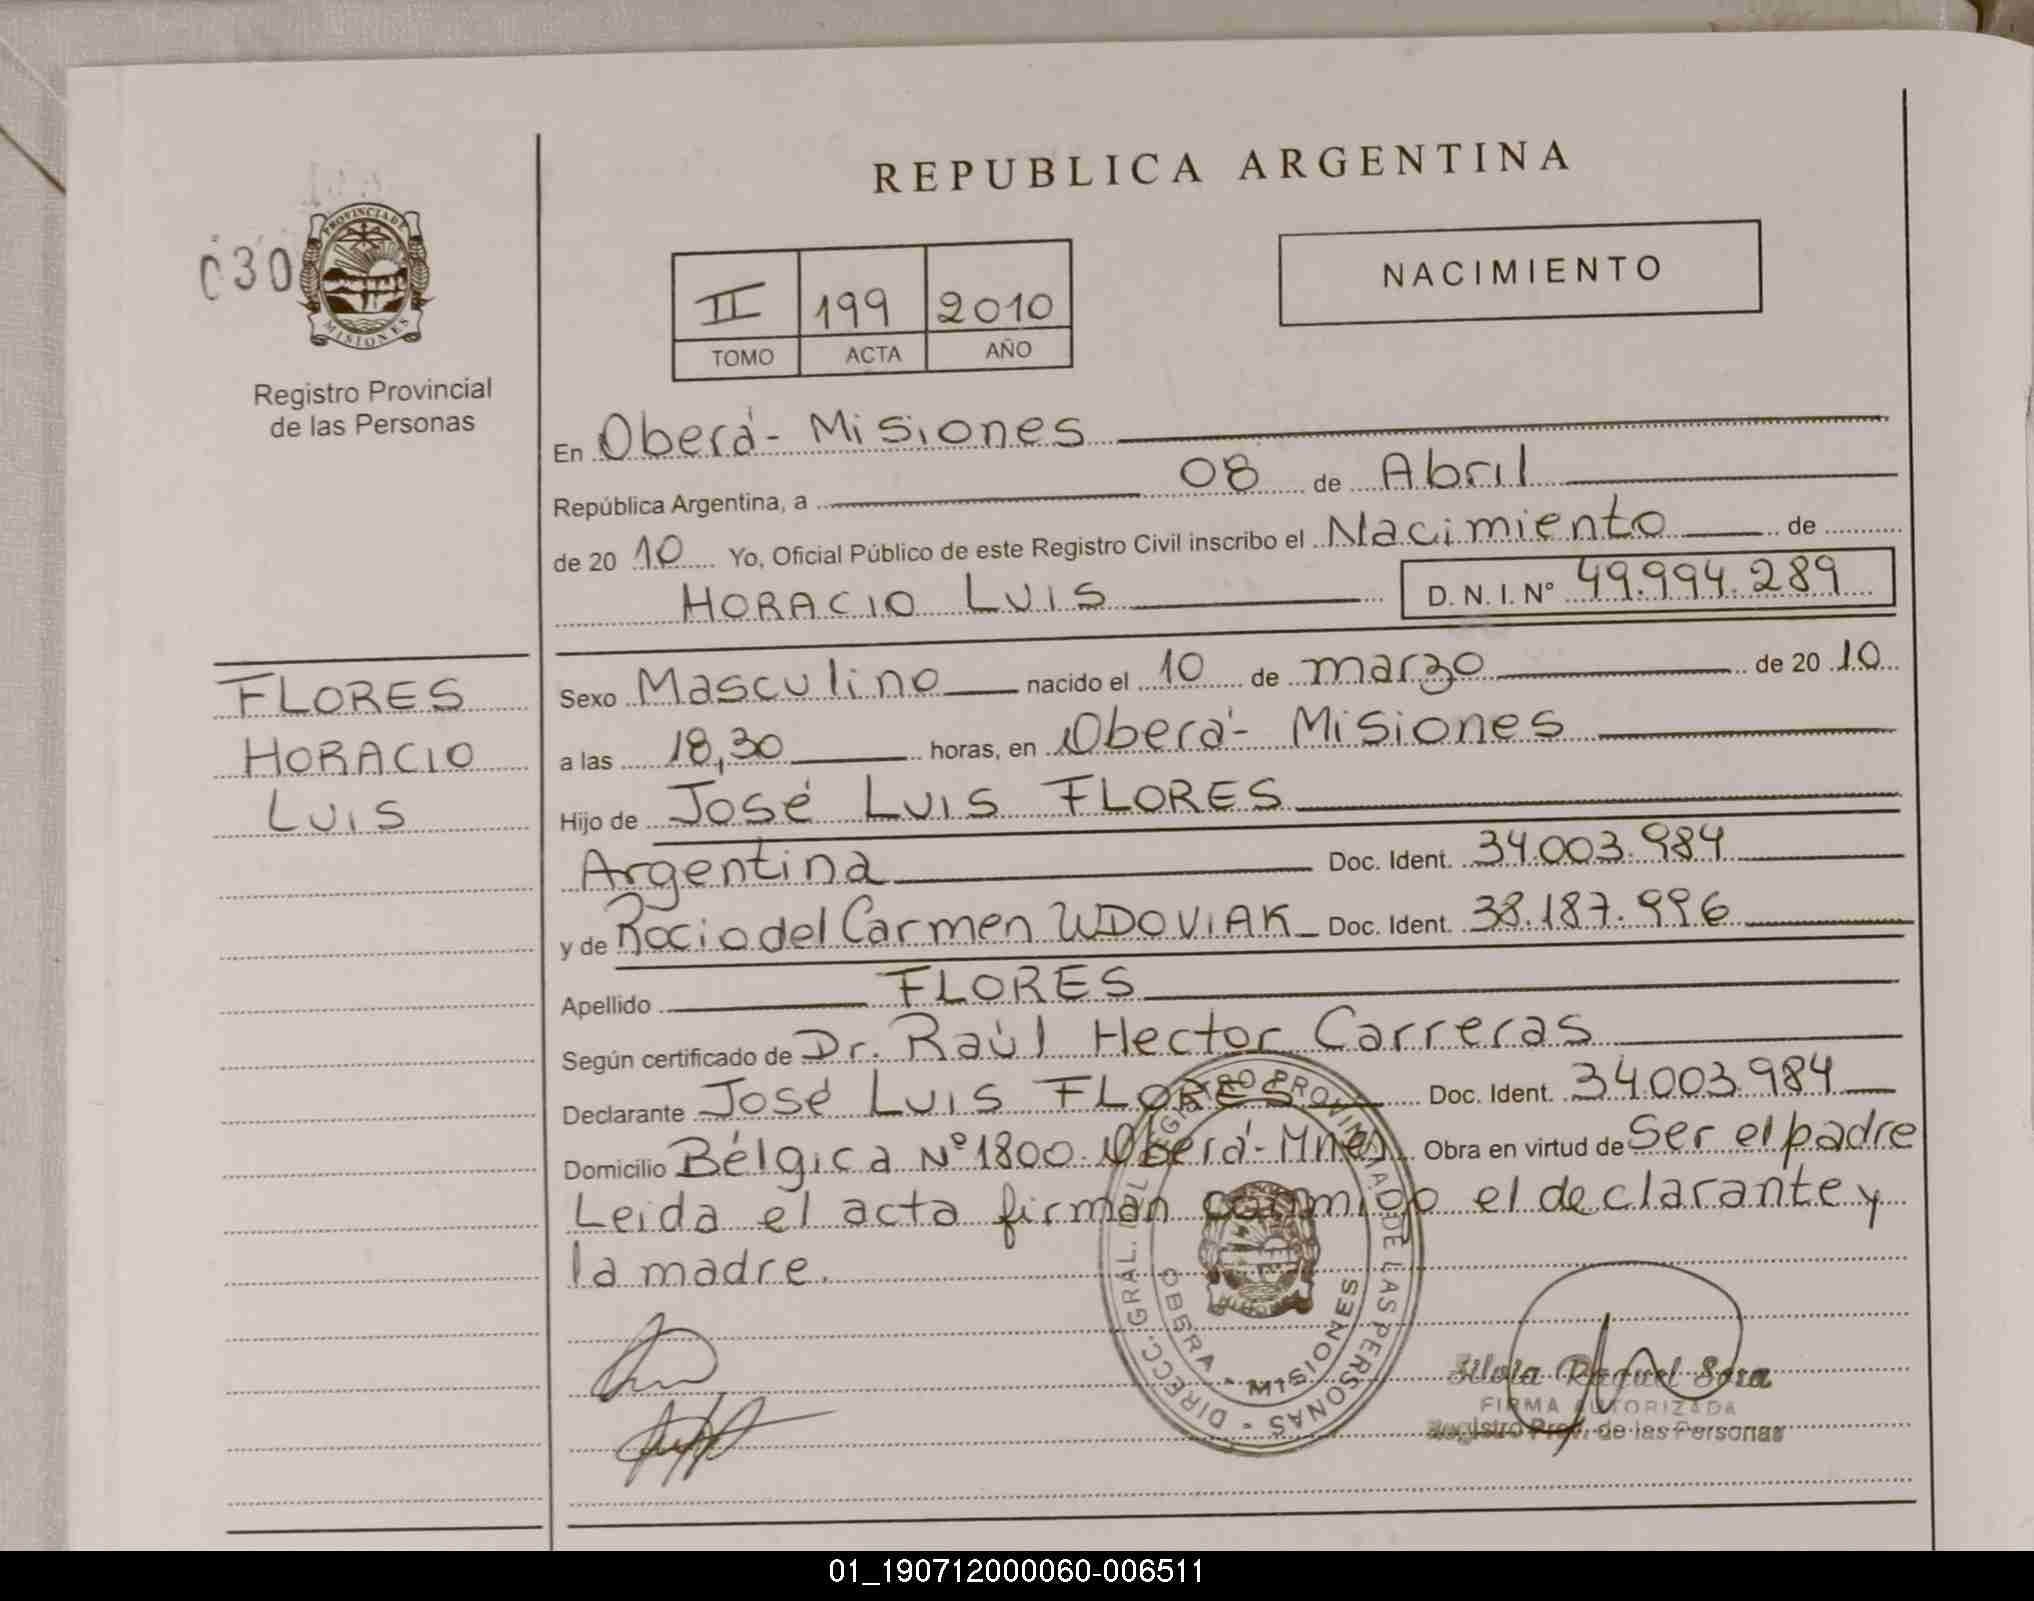 REPUBLICA ARGENTINA
030
PROVINCIA DE
MISIONES
Registro Provincial
de las Personas
II 199 2010
TOMO ACTA AÑO
NACIMIENTO
En Oberá - Misiones
República Argentina, a 08 de Abril
de 20 10 Yo, Oficial Público de este Registro Civil inscribo el Nacimiento de
HORACIO LUIS D. N. I. Nº 49.994.289
FLORES
HORACIO
LUIS
Sexo Masculino nacido el 10 de marzo de 20 10
a las 18,30 horas, en Oberá - Misiones
Hijo de José LUIS FLORES
Argentina Doc. Ident. 34.003.984
y de Rocio del Carmen UDOVIAK Doc. Ident. 38.187.996
Apellido FLORES
Según certificado de Dr. Raúl Hector Carreras
Declarante José LUIS FLORES Doc. Ident. 34.003.984
Domicilio Bélgica Nº 1800. Oberá - Mnes Obra en virtud de Ser el padre
Leida el acta firman conmigo el declarante y
la madre.
DIRECC. GRAL. DEL REGISTRO PROVINCIAL DE LAS PERSONAS -
OBERA - MISIONES
Silvia Raquel Sosa
FIRMA AUTORIZADA
Registro Prov. de las Personas
01_190712000060-006511